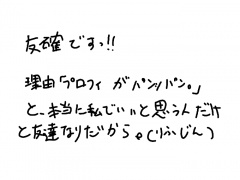 友確ですっ!!
理由「プロフィ がパンパン。」
と、本当に私でいいと思うんだけ
と友達なりだから。(りふじん)